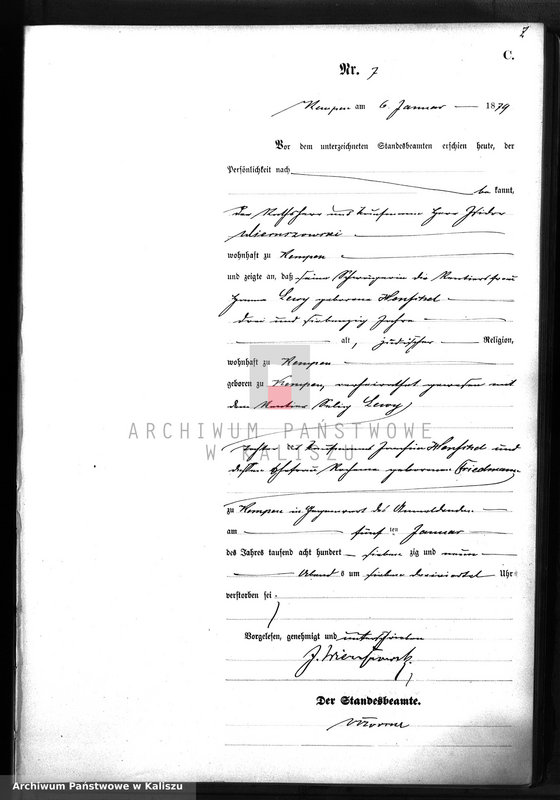 2
C.
Nr. 7
Kempen am 6 Januar 1879
Vor dem unterzeichneten Standesbeamten erschien heute, der
Persönlichkeit nach
bekannt,
der Rathsherr und Kaufmann Herr Isidor
Wieruszowski
wohnhaft zu Kempen
und zeigte an, daß seine Schwägerin die Rentiersfrau
Lewy geborene
drei und siebenzig Jahre
alt, jüdischer Religion,
wohnhaft zu Kempen
geboren zu Kempen, verheirathet gewesen mit
dem Rentier Selig Lewy,
Tochter des Kaufmanns Joachim und
dessen Ehefrau geborenen Friedmann
zu Kempen in Gegenwart des Anmeldenden
am fünften Januar
des Jahres tausend acht hundert siebenzig und neun
Abends um sieben dreiviertel Uhr
verstorben sei.
Vorgelesen, genehmigt und unterschrieben
J. Wieruszowski.
Der Standesbeamte.
ARCHIWUM PAŃSTWOWE
W KALISZU
Archiwum Państwowe w Kaliszu